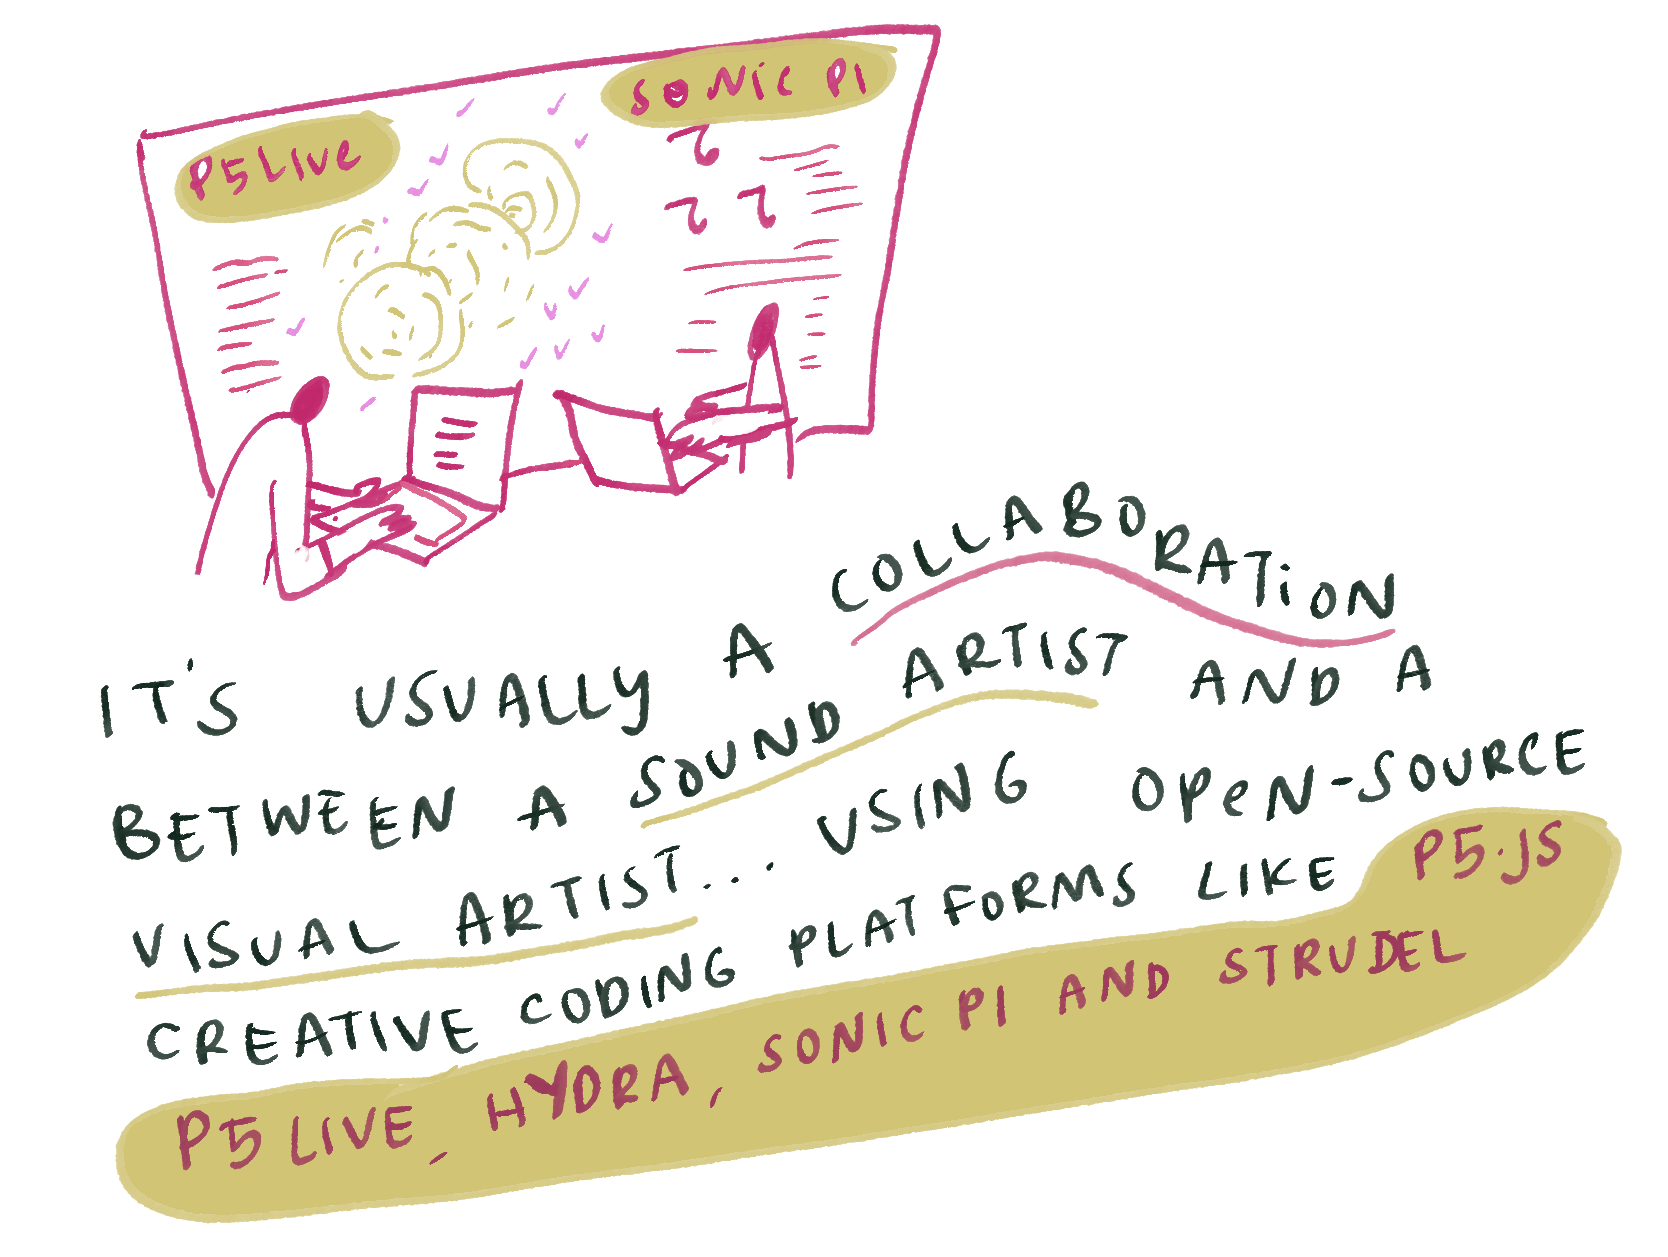 P5LIVE
SONIC PI
IT'S USUALLY A COLLABORATION
BETWEEN A SOUND ARTIST AND A
VISUAL ARTIST... USING OPEN-SOURCE
CREATIVE CODING PLATFORMS LIKE P5.JS
P5LIVE, HYDRA, SONIC PI AND STRUDEL